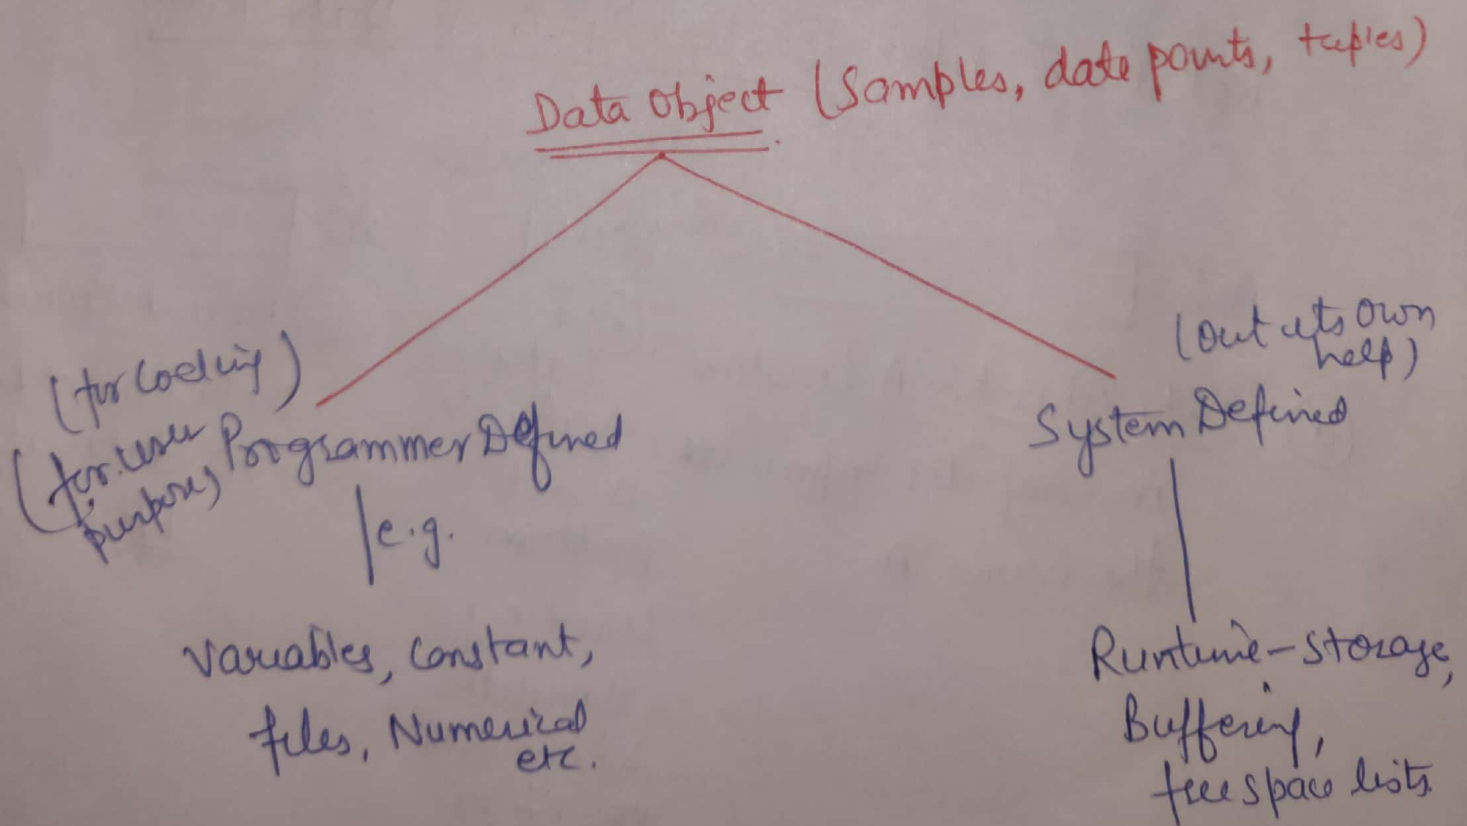 Data Object (Samples, date points, tuples)
(for Coding)
(for user
purpose)
Programmer Defined
e.g.
Variables, Constant,
files, Numerical
etc.
(out its own
help)
System Defined
Runtime-storage,
Buffering,
free space lists.